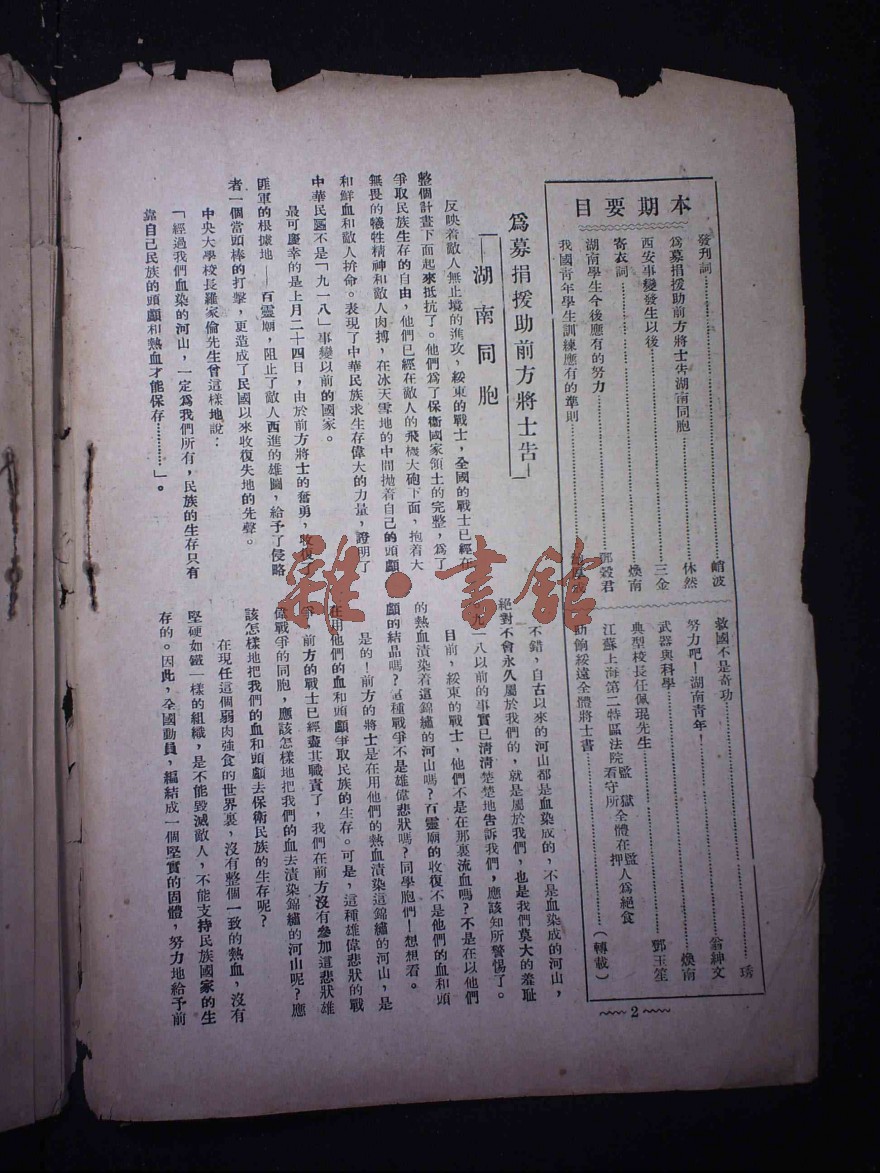 本期要目
發刊詞……峭波
爲募捐援助前方將士告湖南同胞……休然
西安事變發生以後……三金
寄衣詞……煥南
湖南學生今後應有的努力……鄧毅君
我國青年學生訓練應有的準則……
救國不是奇功……琇
努力吧！湖南青年！……翁紳文
武器與科學……煥南
典型校長任佩琨先生……鄧玉笙
江蘇上海第二特區法院監獄看守所全體在押監人爲絕食
助餉綏遠全體將士書……（轉載）
2
爲募捐援助前方將士告
湖南同胞
反映着敵人無止境的進攻，綏東的戰士，全國的戰士已經在
整個計畫下面起來抵抗了。他們爲了保衛國家領土的完整，爲了
爭取民族生存的自由，他們已經在敵人的飛機大砲下面，抱着大
無畏的犧牲精神和敵人肉搏，在冰天雪地的中間拋着自己的頭顱
和鮮血和敵人拚命。表現了中華民族求生存偉大的力量，證明了
中華民國不是「九一八」事變以前的國家。
最可慶幸的是上月二十四日，由於前方將士的奮勇，收復了
匪軍的根據地——百靈廟，阻止了敵人西進的雄圖，給予了侵略
者一個當頭棒的打擊，更造成了民國以來收復失地的先聲。
中央大學校長羅家倫先生曾這樣地說：
「經過我們血染的河山，一定爲我們所有，民族的生存只有
靠自己民族的頭顱和熱血才能保存………」。
不錯，自古以來的河山都是血染成的，不是血染成的河山，
絕對不會永久屬於我們的，就是屬於我們，也是我們莫大的羞恥
九一八以前的事實已清清楚楚地告訴我們，應該知所警惕了。
目前，綏東的戰士，他們不是在那裏流血嗎？不是在以他們
的熱血漬染着這錦繡的河山嗎？百靈廟的收復不是他們的血和頭
顱的結品嗎？這種戰爭不是雄偉悲狀嗎？同學胞們！想想看。
是的！前方的將士是在用他們的熱血漬染這錦繡的河山，是
在用他們的血和頭顱爭取民族的生存。可是，這種雄偉悲狀的戰
爭，前方的戰士已經盡其職責了，我們在前方沒有參加這悲狀雄
偉戰爭的同胞，應該怎樣地把我們的血去漬染錦繡的河山呢？應
該怎樣地把我們的血和頭顱去保衛民族的生存呢？
在現任這個弱肉強食的世界裏，沒有整個一致的熱血，沒有
堅硬如鐵一樣的組織，是不能毀滅敵人，不能支持民族國家的生
存的。因此，全國動員，編結成一個堅實的固體，努力地給予前
雜·書館